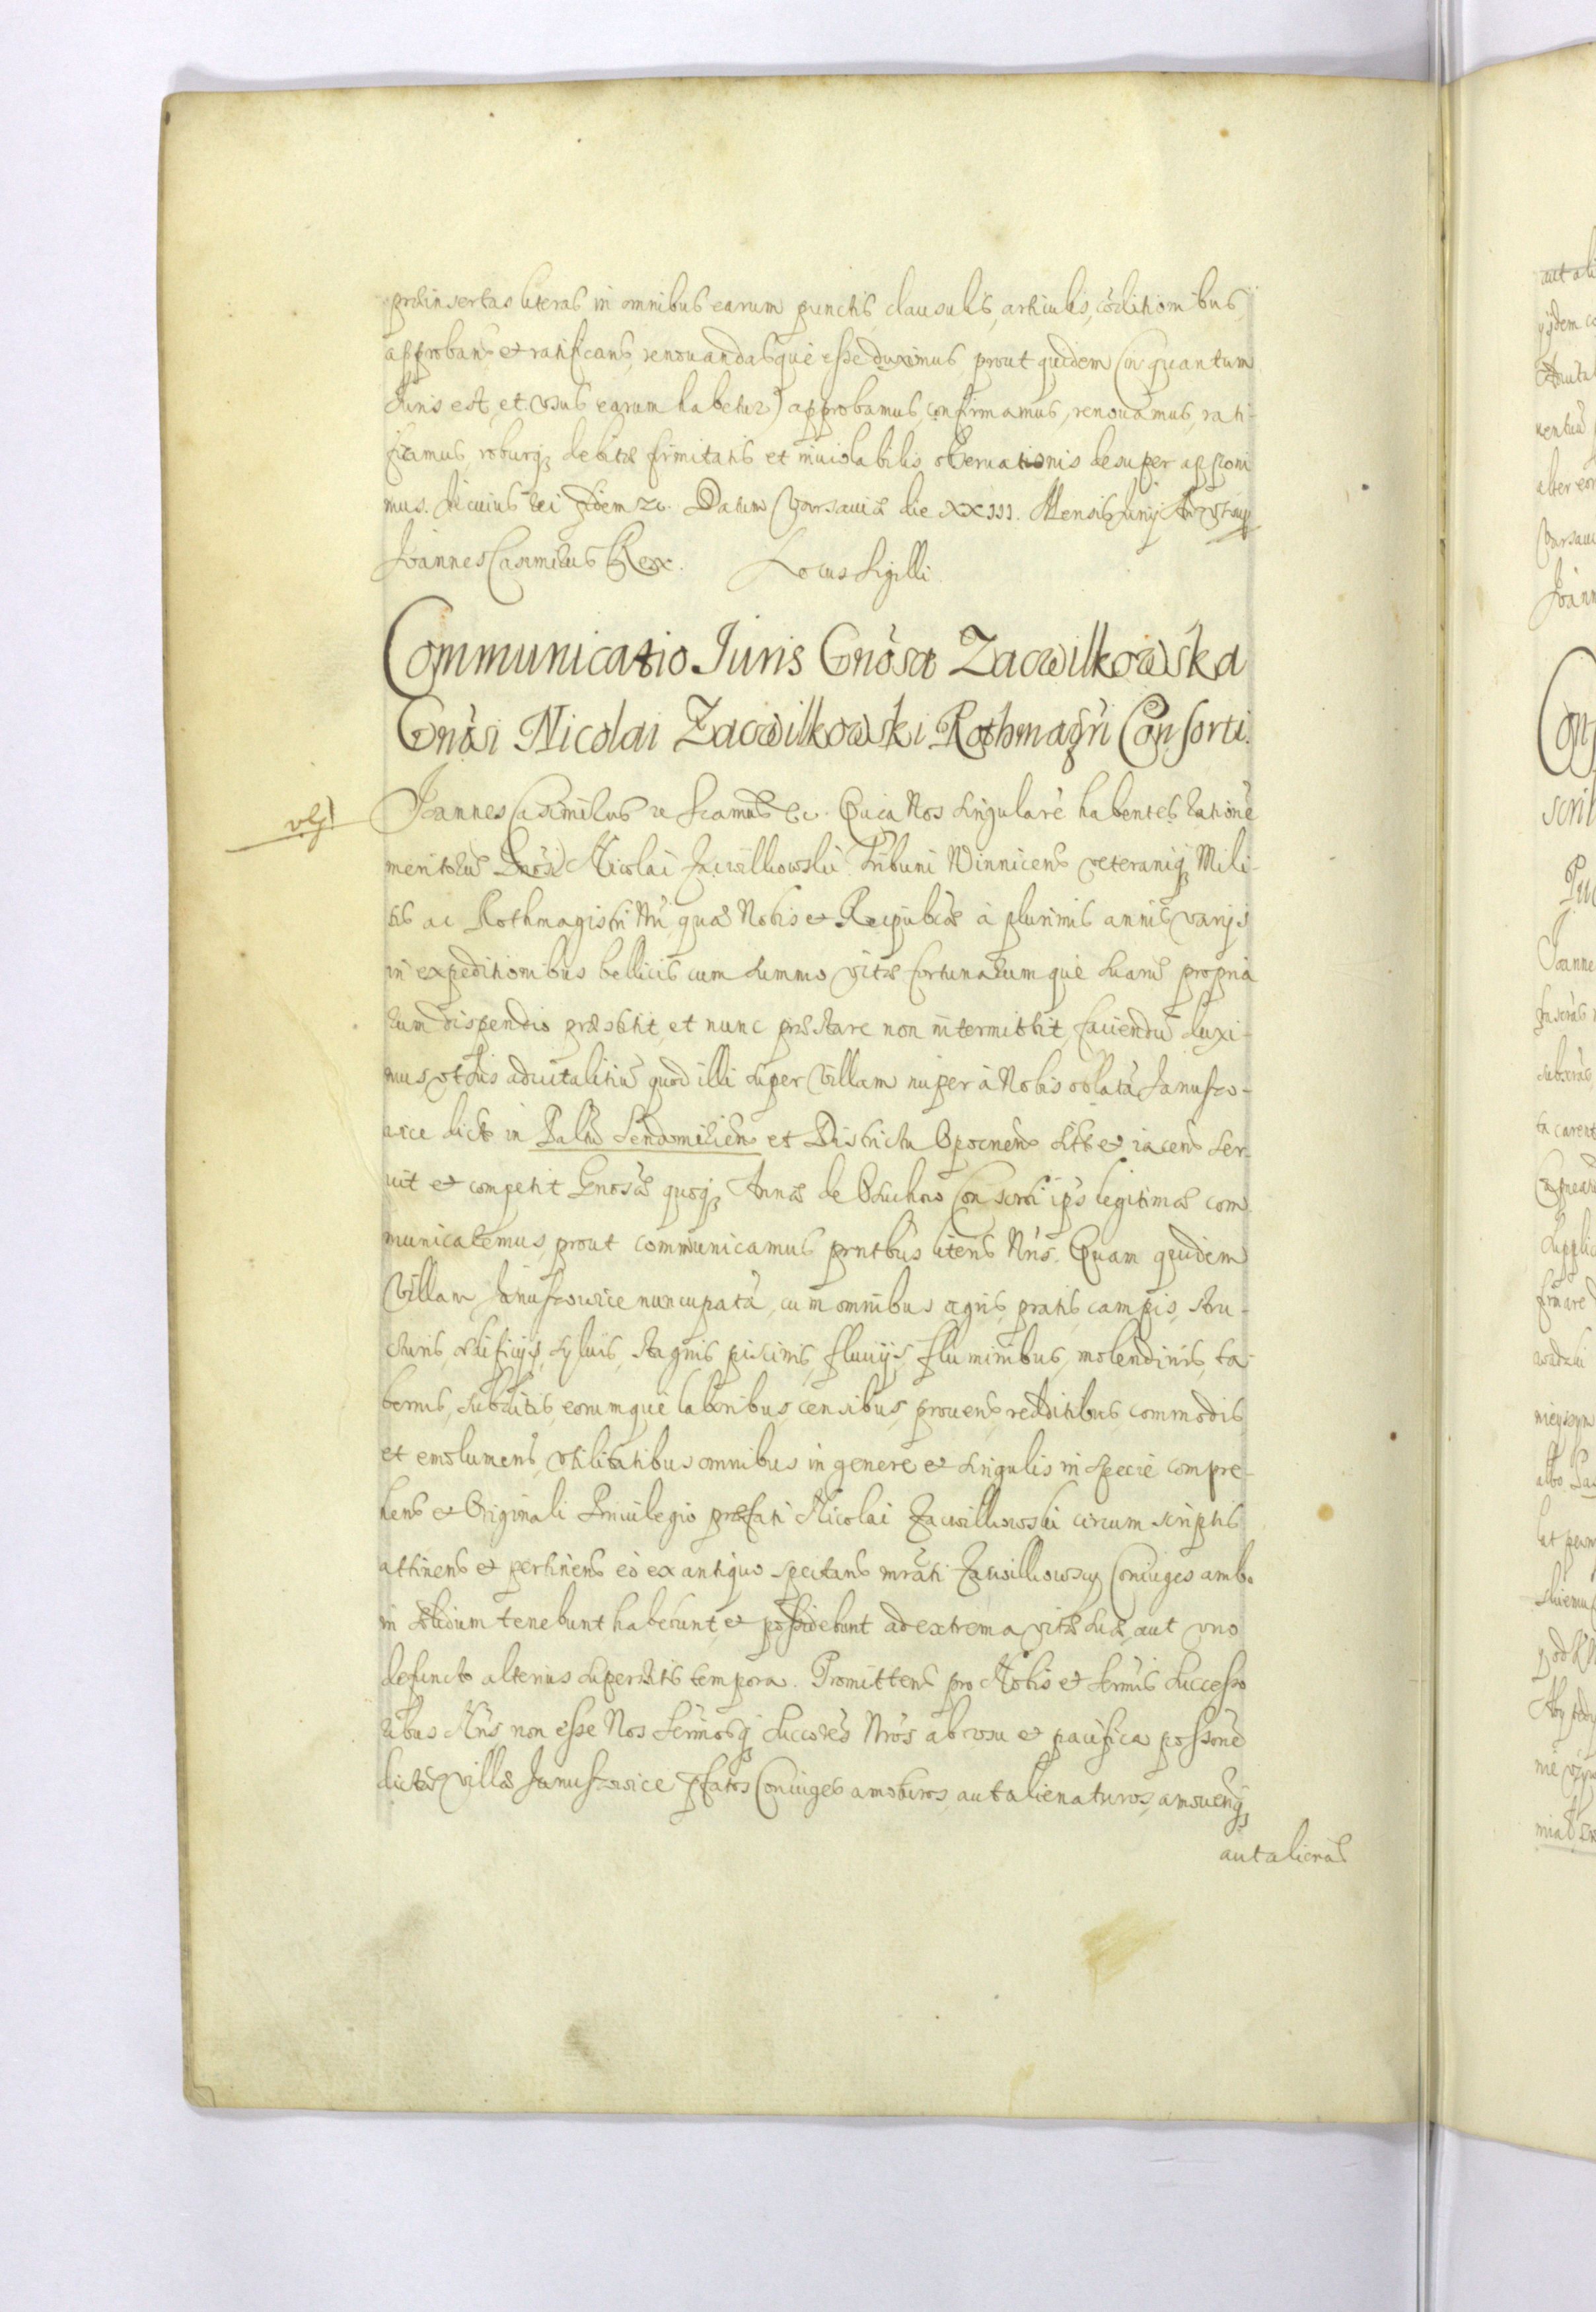 præinsertas literas in omnibus earum punctis, clausulis, articulis, coditionibus,
approbans et ratificans, renouandasque esse duximus, prout quidem (in quantum
Iuris est, et vsus earum habetur) approbamus, confirmamus, renouamus, rati-
ficamus, roburq3 debitæ firmitatis et inuiolabilis obseruationis desuper apponi
mus. In cuius rei fidem &c. Datum Varsauiæ die XXIII. Mensis Iunij
Ioannes Casimirus Rex. Locus Sigilli.
Communicatio Iuris Gnosæ Zacwilkowska
Gnosi Nicolai Zacwilkowski Rothmagri Consorti.
Ioannes Casimirus &c. Quia Nos singularē habentes rationē
meritorū Gnosi Nicolai Zacwilkowski Tribuni Winnicens veteraniq3 Mili-
tis ac Rothmagistri Nri, quæ Nobis et Reipublcæ à plurimis annis varijs
in expeditionibus bellicis cum summo vitæ fortunarumque suarū propria
rum dispendio præstitit, et nunc præstare non intermittit, faciendū duxi-
mus, vt Ius aduitalitiū quod illi super Villam nuper à Nobis collatā Januszo-
wice dictā in Palnū Sendomiriens et Districtu Opocnens sitā et iacens ser-
uit et competit Gnosæ quoq3 Annæ de Consorti ips legitimæ com
municaremus, prout communicamus pntbus literis Nris. Quam quidem
Villam Januszowice nuncupatā, cum omnibus agris, pratis, campis, stru-
cturis, ædificijs, syluis, stagnis, piscinis, fluuijs, fluminibus, molendinis, ta-
bernis, subditis, eorumque laboribus, censibus, prouens, redditibus, commodis
et emolumens, vtilitatibus omnibus in genere et singulis in specie compre-
hens et Originali Priuilegio præfati Nicolai Zacwilkowski circumscriptis
attinens et pertinens eò ex antiquo spectans mrati Zacwilkowscy Coniuges ambo
in solidum tenebunt, habebunt, et possidebunt ad extrema vitæ suæ, aut vno
defuncto alterius superstitis tempora. Promittens pro Nobis et Sermis Successo
ribus Nris, non esse Nos Sermosq3 Succores Nros ab vsu et pacifica possone
dictæ Villæ Januszowice pfatos Coniuges amoturos, aut alienaturos, amouendiq3
aut alienād